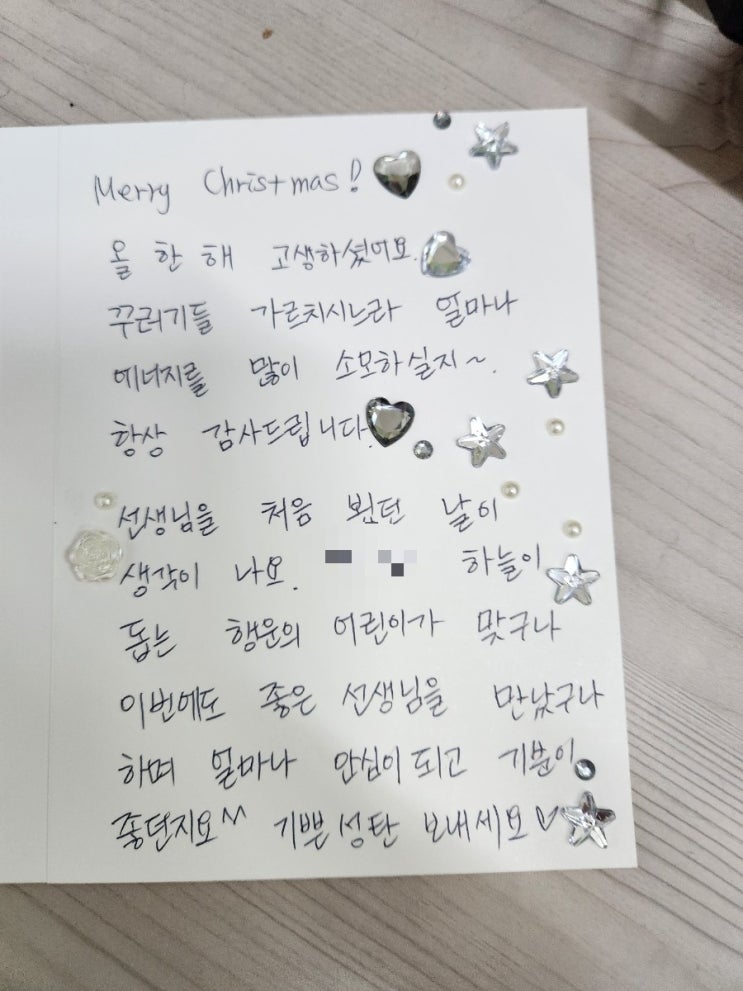 Merry Christmas!
올 한 해 고생하셨어요.
꾸러기들 가르치시느라 얼마나
에너지를 많이 소모하실지~.
항상 감사드립니다.
선생님을 처음 뵀던 날이
생각이 나요. 하늘이
돕는 행운의 어린이가 맞구나
이번에도 좋은 선생님을 만났구나
하며 얼마나 안심이 되고 기분이
좋던지요^^ 기쁜 성탄 보내세요♡